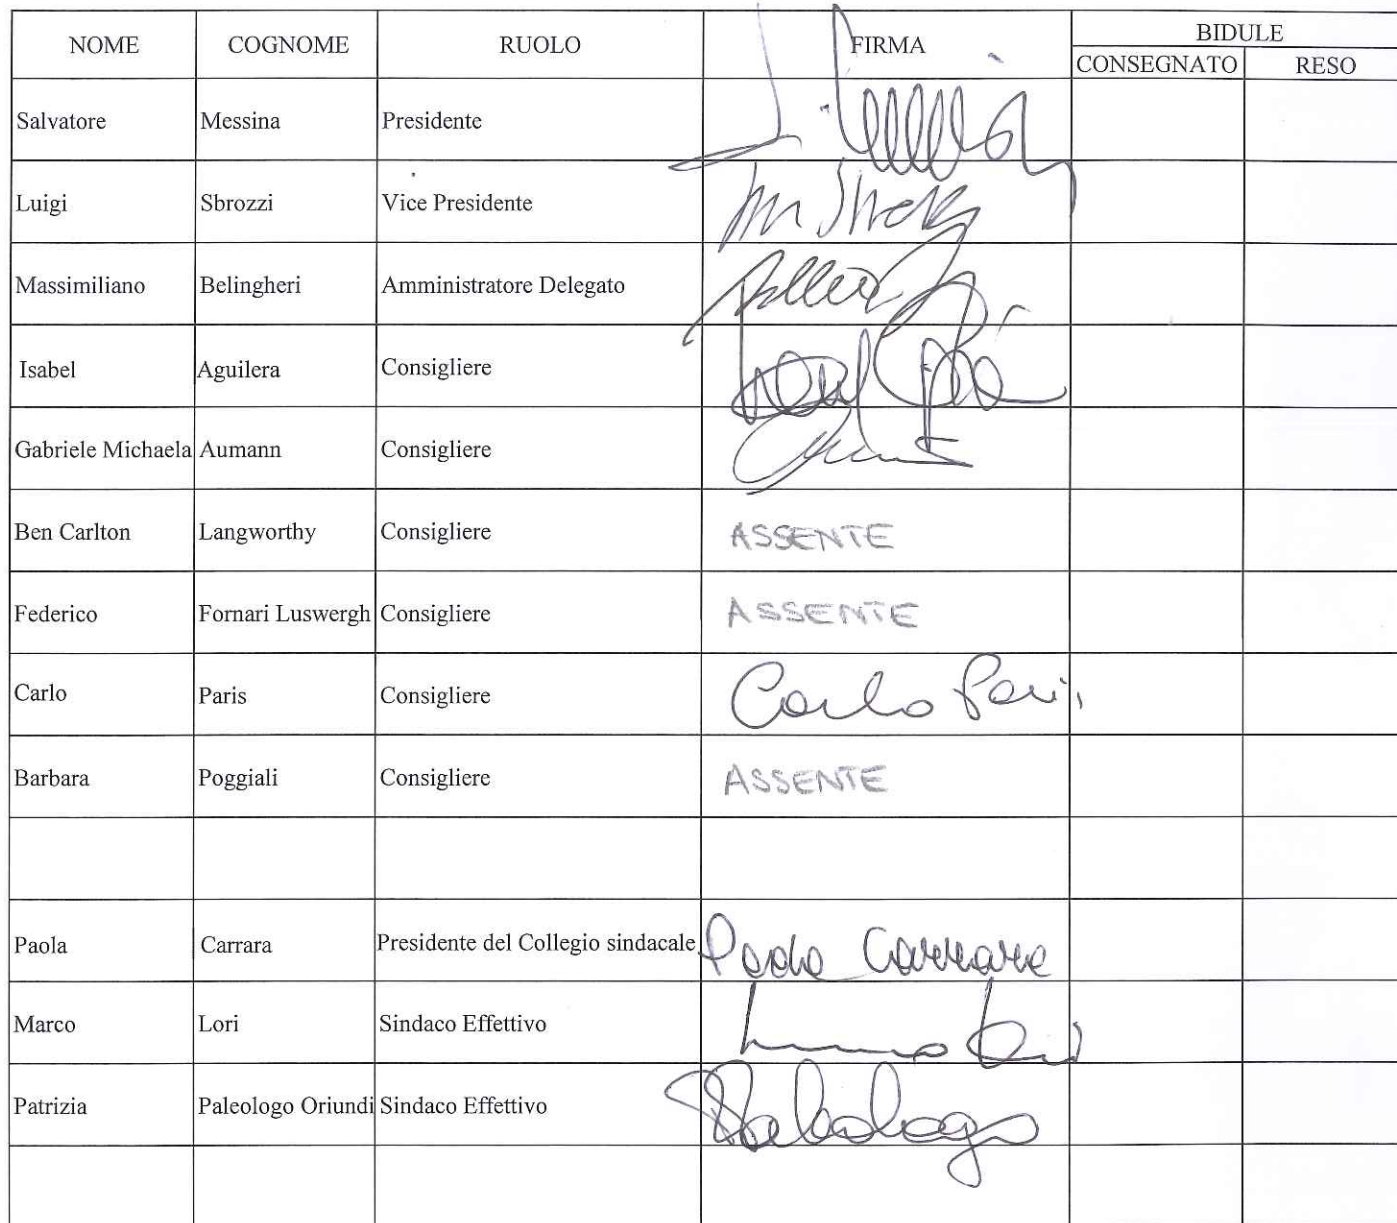 NOME COGNOME RUOLO FIRMA BIDULE
CONSEGNATO RESO
Salvatore Messina Presidente
Luigi Sbrozzi Vice Presidente
Massimiliano Belingheri Amministratore Delegato
Isabel Aguilera Consigliere
Gabriele Michaela Aumann Consigliere
Ben Carlton Langworthy Consigliere ASSENTE
Federico Fornari Luswergh Consigliere ASSENTE
Carlo Paris Consigliere Carlo Paris
Barbara Poggiali Consigliere ASSENTE
Paola Carrara Presidente del Collegio sindacale Paola Carrara
Marco Lori Sindaco Effettivo
Patrizia Paleologo Oriundi Sindaco Effettivo Paleologo